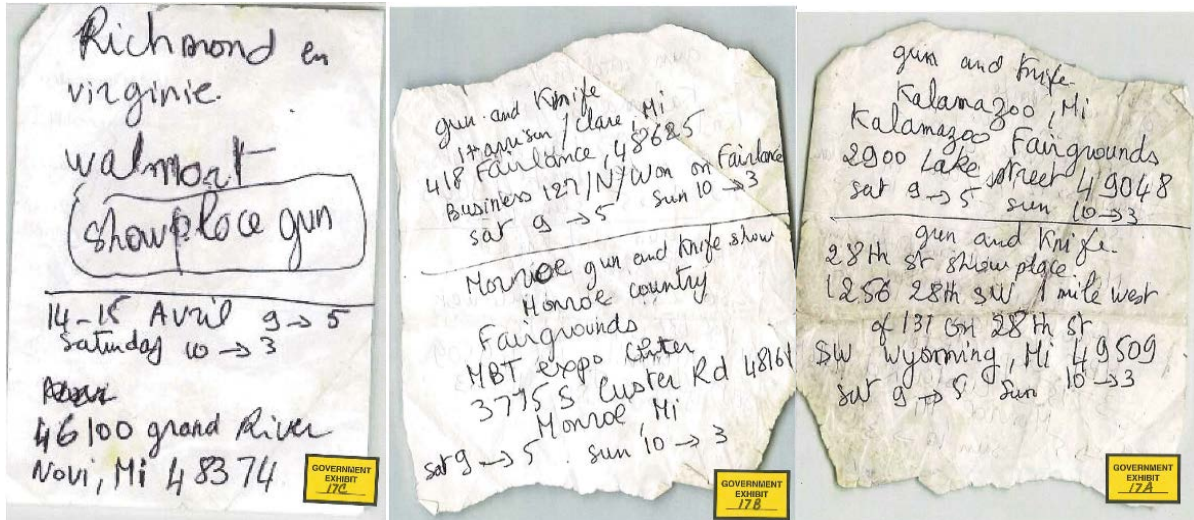 Richmond en
virginie.
walmart
showplace gun
14-15 Avril 9→5
Saturday 10→3
46100 grand River
Novi, Mi 48374
GOVERNMENT
EXHIBIT
17C
gun and Knife
Harrison / Clare, Mi
418 Fairlance, 48625
Business 127/N/ on Fairlance
sat 9→5 sun 10→3
Monroe gun and Knife show
Monroe country
Fairgrounds
MBT expo Center
3775 S Custer Rd 48161
Monroe, Mi
sat 9→5 . sun 10→3
GOVERNMENT
EXHIBIT
17B
gun and Knife
Kalamazoo, Mi
Kalamazoo Fairgrounds
2900 Lake street 49048
sat 9→5 sun 10→3
gun and Knife.
28th st showplace.
1256 28th SW 1 mile west
of 131 on 28th st
SW wyoming, Mi 49509
sat 9→5 sun 10→3
GOVERNMENT
EXHIBIT
17A